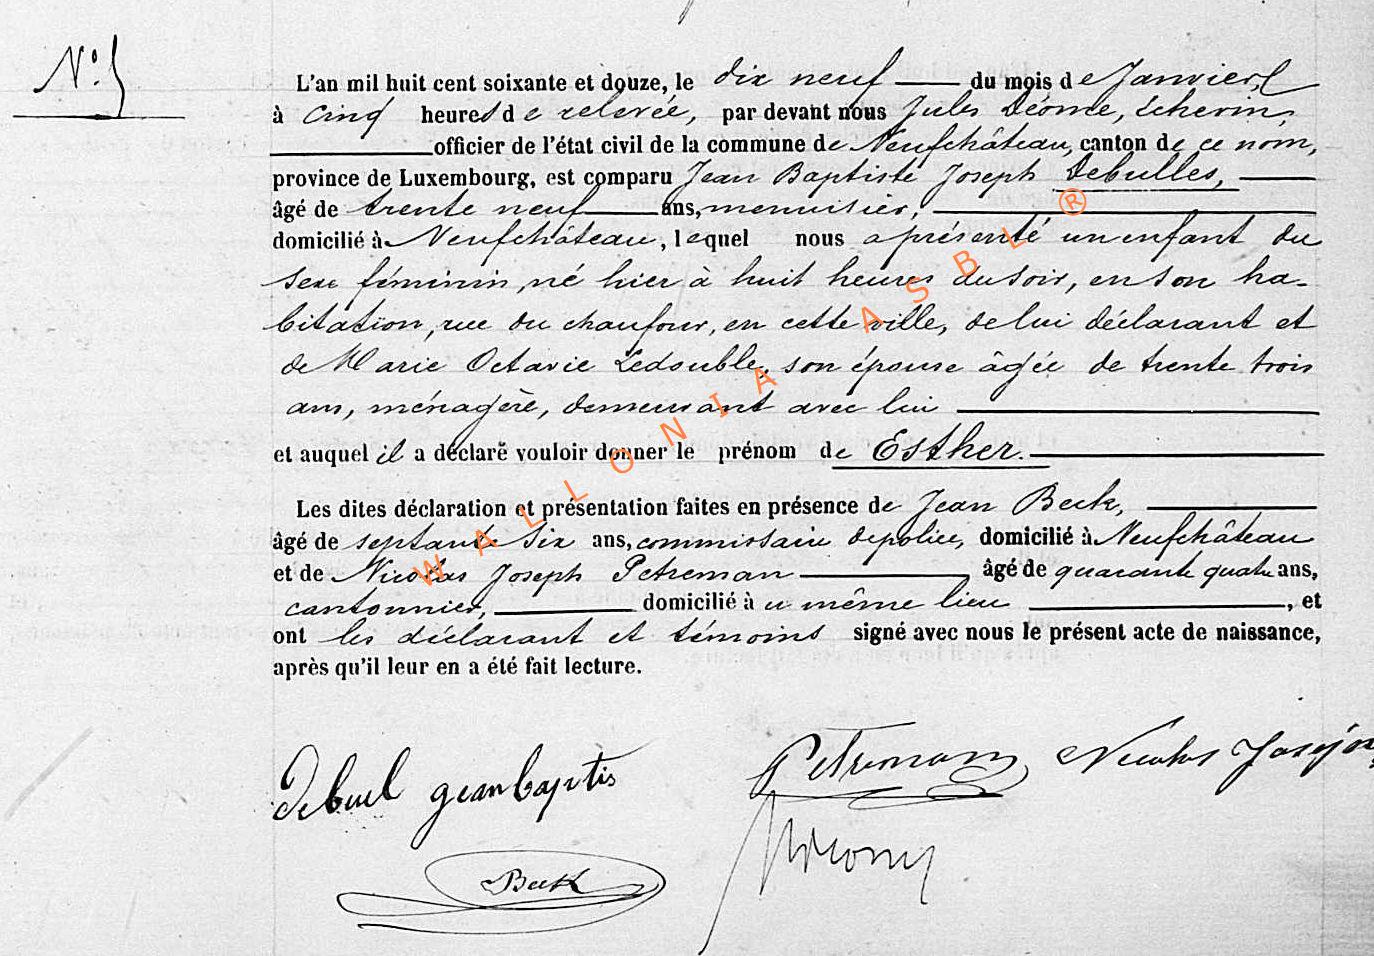 N° 5
L'an mil huit cent soixante et douze, le dix neuf du mois de Janvier,
à cinq heures de relevée, par devant nous Jules Déome, Echevin,
officier de l'état civil de la commune de Neufchâteau, canton de ce nom,
province de Luxembourg, est comparu Jean Baptiste Joseph Debulles,
âgé de trente neuf ans, menuisier,
domicilié à Neufchâteau, lequel nous a présenté un enfant du
sexe féminin, né hier à huit heures du soir, en son ha-
bitation, rue du chaufour, en cette ville, de lui déclarant et
de Marie Octavie Ledouble, son épouse âgée de trente trois
ans, ménagère, demeurant avec lui
et auquel il a déclaré vouloir donner le prénom de Esther.
Les dites déclaration et présentation faites en présence de Jean Beck,
âgé de septante six ans, commissaire de police, domicilié à Neufchâteau
et de Nicolas Joseph Petreman âgé de quarante quatre ans,
cantonnier, domicilié à u même lieu, et
ont les déclarant et témoins signé avec nous le présent acte de naissance,
après qu'il leur en a été fait lecture.
debuel gean baptis
Petreman Nicolas Joseph
Beck
WALLONIA ASBL ®